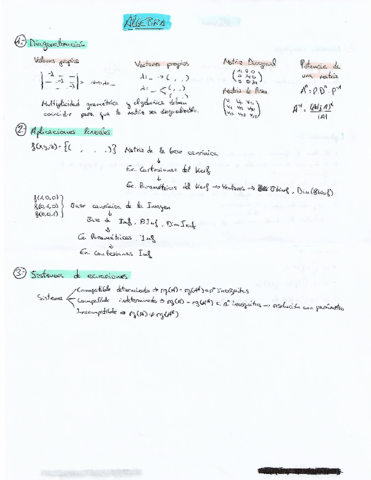 ÁLGEBRA
1- Diagonalización
Valores propios
Vectores propios
Matriz Diagonal
Potencia de una matriz
Matriz de Paso
Multiplicidad geométrica y algebraica deben
coincidir para que la matriz sea diagonalizable.
2- Aplicaciones lineales
Matriz de la base canónica
Ec. Cartesianas del Kerf
Ec. Paramétricas del Kerf → Vectores →
f(1,0,0)
f(0,1,0)
f(0,0,1)
Base canónica de la Imagen
Base de Imf, Dim Imf
Ec Paramétricas Imf
Ec Cartesianas Imf
3- Sistemas de ecuaciones
Sistema
Compatible determinado ⇒ rg(A) = rg(A*) = nº incógnitas
Compatible indeterminado ⇒ rg(A) = rg(A*) < nº incógnitas → resolución con parámetros
Incompatible ⇒ rg(A) ≠ rg(A*)